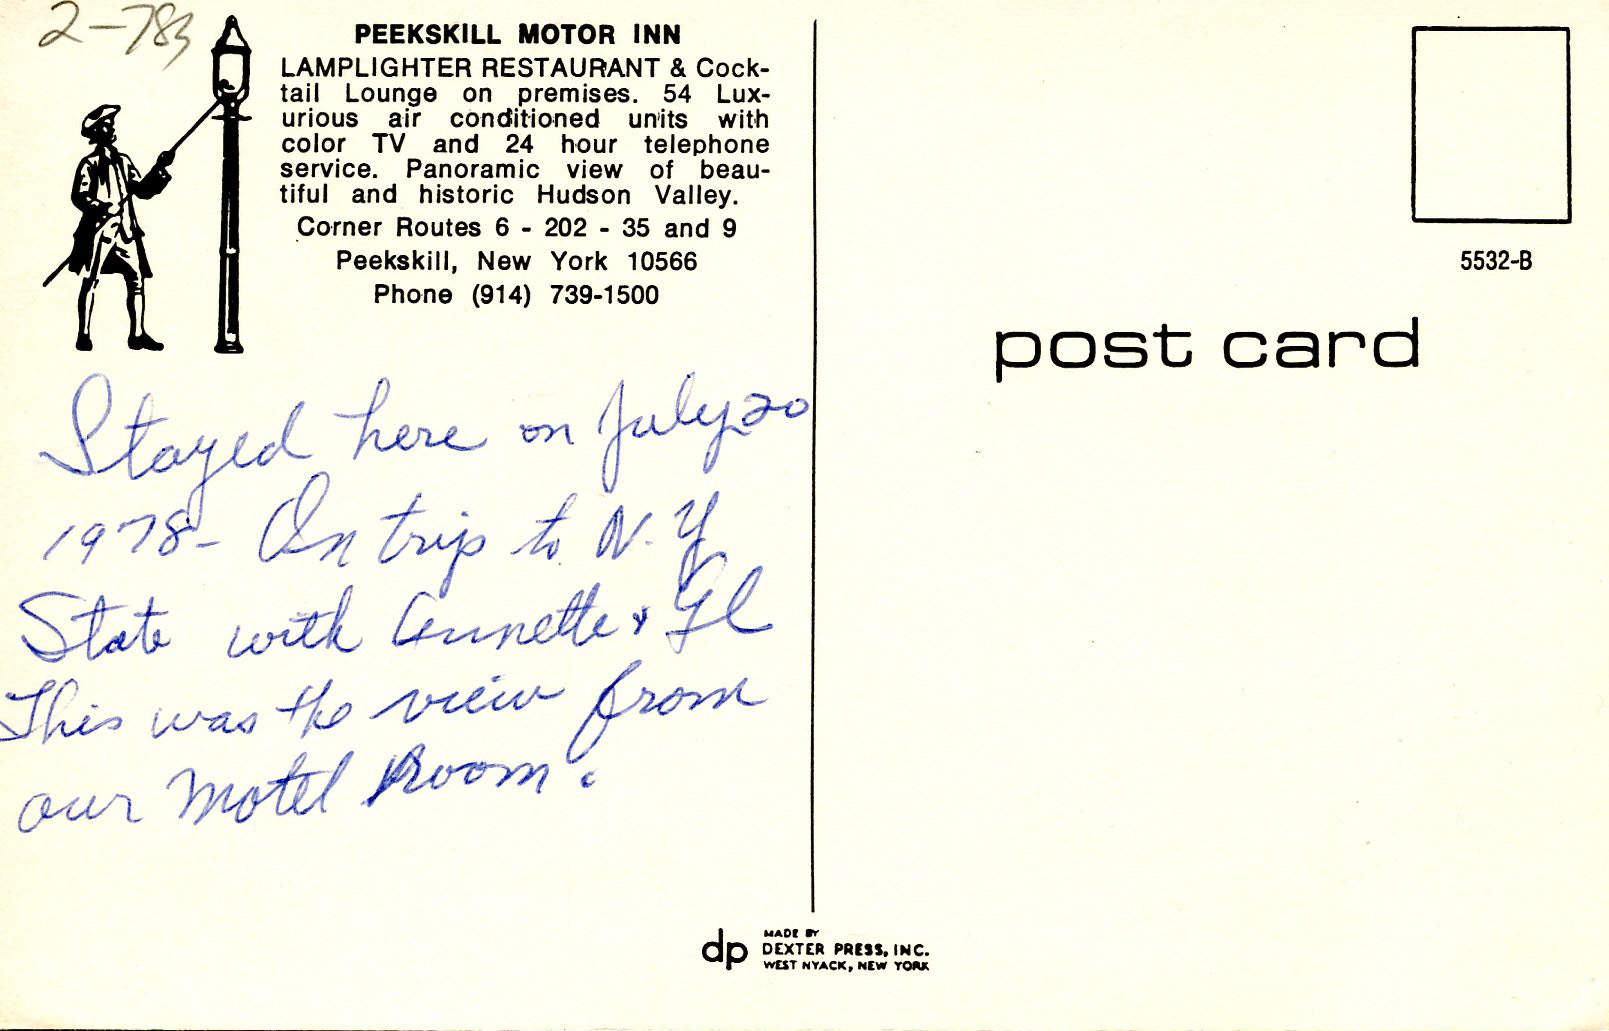 2-783
PEEKSKILL MOTOR INN
LAMPLIGHTER RESTAURANT & Cock-
tail Lounge on premises. 54 Lux-
urious air conditioned units with
color TV and 24 hour telephone
service. Panoramic view of beau-
tiful and historic Hudson Valley.
Corner Routes 6 - 202 - 35 and 9
Peekskill, New York 10566
Phone (914) 739-1500
Stayed here on July 20
1978- On trip to N.Y
State with Annette &
This was the view from
our Motel Room.
5532-B
post card
dp
MADE BY
DEXTER PRESS, INC.
WEST NYACK, NEW YORK